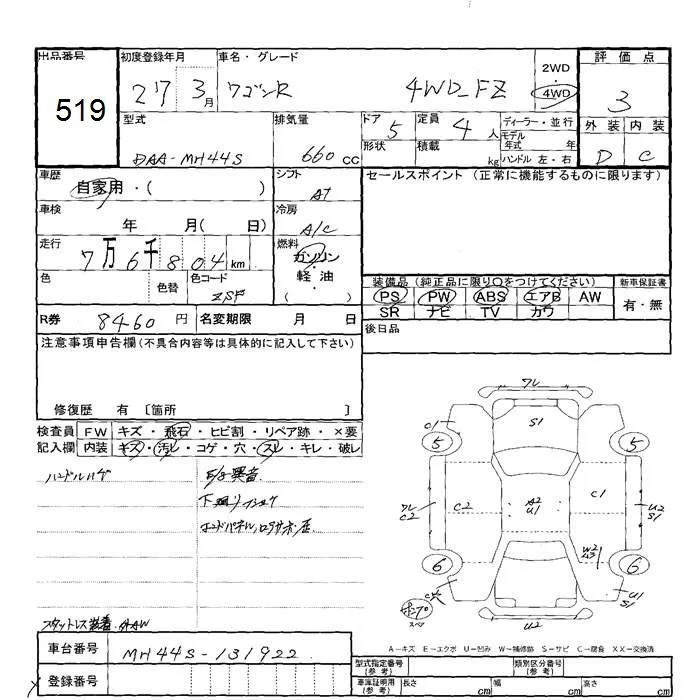 出品番号 初度登録年月 車名・グレード 2WD・4WD 評価点
519
27 3月 ワゴンR 4WD FZ 3
型式 排気量 ドア形状 定員 積載 ディーラー・並行 外装 内装
DAA-MH44S 660cc 5 4人 kg モデル年式 年 D C
ハンドル左・右
車歴 自家用・( ) シフト AT セールスポイント(正常に機能するものに限ります)
車検 年 月( 日) 冷房 A/C
走行 7万6千804km 燃料 ガソリン・軽油・( )
色 色替 色コード ZSF
装備品(純正品に限り○をつけてください) 新車保証書
PS PW ABS エアB AW 有・無
SR ナビ TV カワ
R券 8460円 名変期限 月 日 後日品
注意事項申告欄(不具合内容等は具体的に記入して下さい)
修復歴 有 [箇所 ]
検査員記入欄 FW キズ・飛石・ヒビ割・リペア跡・×要
内装 キズ・汚レ・コゲ・穴・スレ・キレ・破レ
ハンドルハゲ 異音
下廻り
スタットレス装着
車台番号 MH44S-131922
登録番号
ワレ
S1
C1
5 5
ワレ C2 C2 A2 U1 C1 U2 S1
W2
6 6
C穴 U1 S1
U2
A-キズ E-エクボ U-凹み W-補修跡 S-サビ C-腐食 XX-交換済
型式指定番号(参考) 類別区分番号(参考)
車庫証明用(参考) 長さ cm 幅 cm 高さ cm